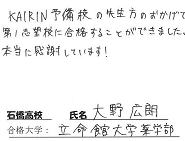 KAIRIN予備校の先生方のおかげで
第1志望校に合格することができました。
本当に感謝しています!
石橋高校 氏名 大野 広朗
合格大学: 立命館大学薬学部